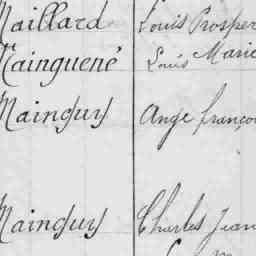 Maillard Louis Prosper
Mainguené Louis Marie
Mainguy Ange françoi
Mainguy Charles Jean